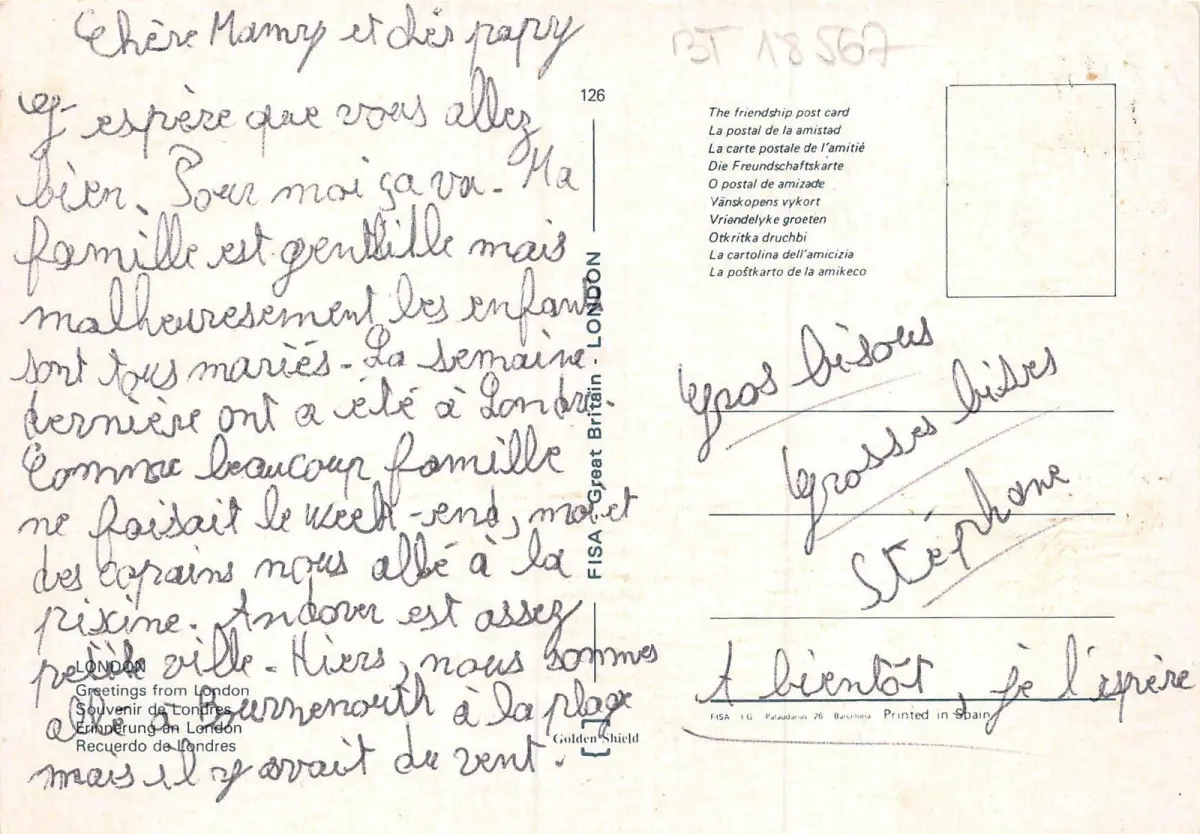 Chère Mamy et chèr papy
J'espère que vous allez
bien. Pour moi ça va - Ma
famille est gentille mais
malheuresement les enfants
sont tous mariés - La semaine
dernière ont a été à Londre.
Comme beaucoup famille
ne faisait le week-end, moi et
des copains nous allé à la
pixine. Andover est assez
petite ville - Hiers, nous sommes
allé à Burnemouth à la plage
mais il y avait du vent.
LONDON
Greetings from London
Souvenir de Londres
Erinnerung an London
Recuerdo de Londres
126
FISA Great Britain - LONDON
Golden Shield
BT 18567
The friendship post card
La postal de la amistad
La carte postale de l'amitié
Die Freundschaftskarte
O postal de amizade
Vänskopens vykort
Vriendelyke groeten
Otkritka druchbi
La cartolina dell'amicizia
La poŝtkarto de la amikeco
Gros bisous
Grosses bises
Stéphane
A bientôt, je l'espère
FISA I.G. Palaudarias 26 Barcelona Printed in Spain